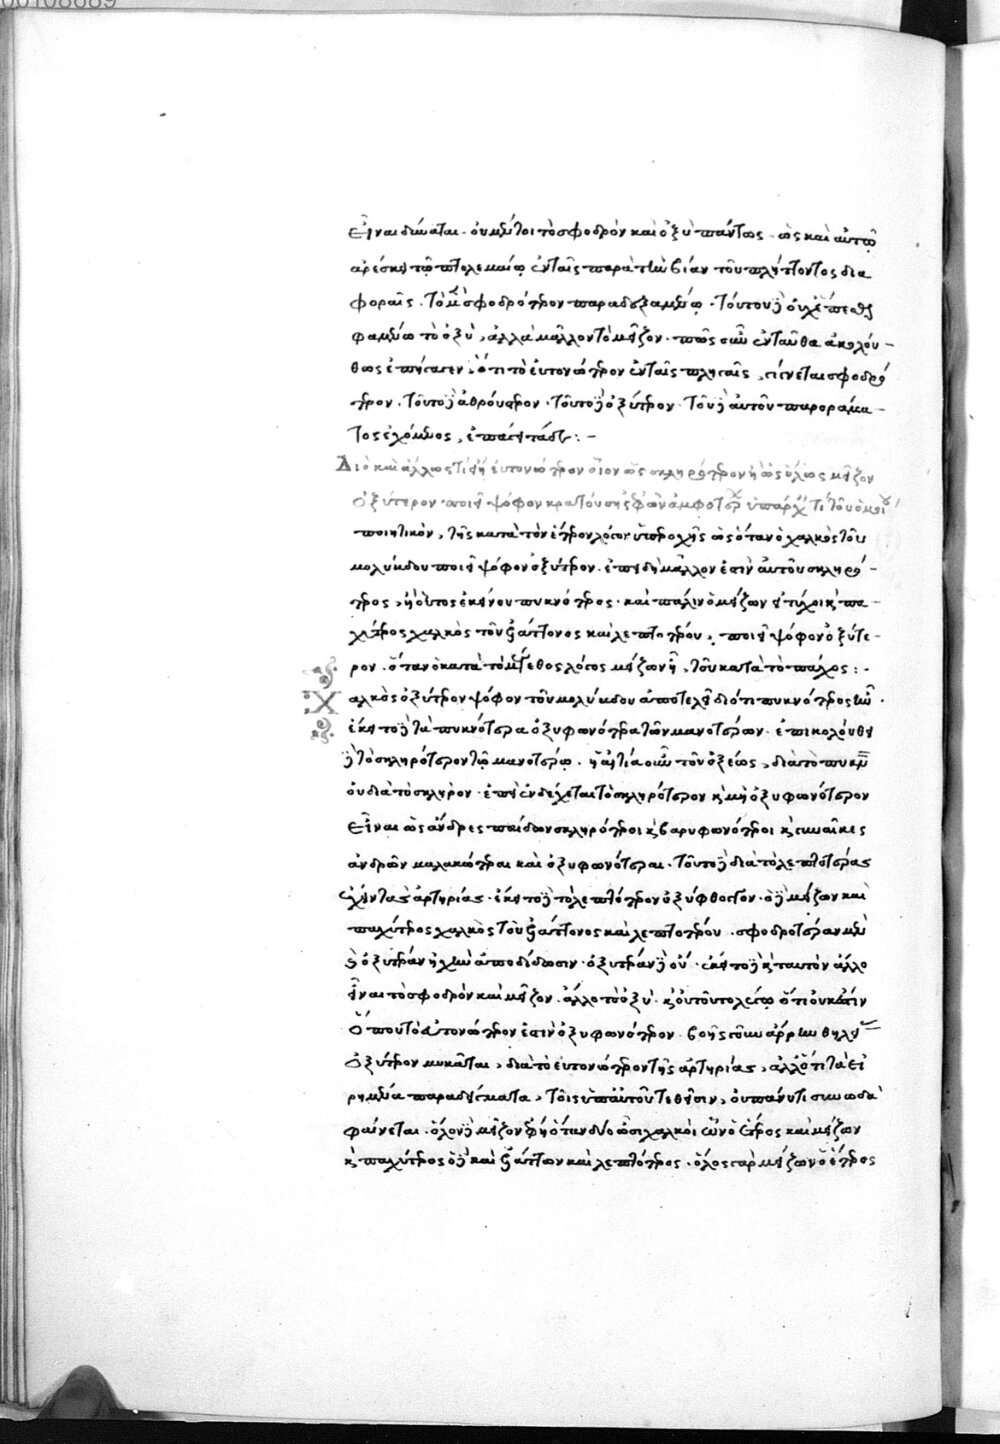 00108689
εἶναι δύναται. οὐ μέντοι τὸ σφοδρὸν καὶ ὀξὺ πάντως. ὡς καὶ αὐτῷ
ἀρέσκει τῷ πτολεμαίῳ ἐν ταῖς παρὰ τὴν βίαν τοῦ πλήττοντος δια
φοραῖς. τὸ μὲν σφοδρότερον παραδεξαμένῳ. τούτου δὲ οὐχ
φαμένῳ τὸ ὀξὺ, ἀλλὰ μᾶλλον τὸ μεῖζον. πῶς οὖν ἐνταῦθα ἀκολού-
θως ἐπήγαγεν, ὅτι τὸ εὐτονώτερον ἐν ταῖς πληγαῖς, γίνεται σφοδρό
τερον. τοῦτο δὲ ἀθρούστερον. τοῦτο δὲ ὀξύτερον. τοῦ δὲ αὐτοῦ παροράμα-
τος ἐχόμενος, :-
Διὸ καὶ ἄλλως τὶ ᾖ εὐτονώτερον οἷον ὡς σκληρότερον ἢ ὡς ὅλως μεῖζον
ὀξύτερον ποιεῖ ψόφον κρατούσης ἐφ' ὧν ἀμφοτέροις ὑπάρχει τὶ τοῦ ὁμοίου
ποιητικὸν, τῆς κατὰ τὸν ἕτερον λόγον ὑπεροχῆς ὡς ὅταν ὁ χαλκὸς τοῦ
μολύβδου ποιεῖ ψόφον ὀξύτερον. ἐπειδὴ μᾶλλον ἐστὶν αὐτοῦ σκληρό-
τερος, ἢ οὗτος ἐκείνου πυκνότερος. καὶ πάλιν ὁ μείζων εἰ τύχοι καὶ πα-
χύτερος χαλκὸς τοῦ ἐλάττονος καὶ λεπτοτέρου, ποιεῖ ψόφον ὀξύτε-
ρον. ὅταν ὁ κατὰ τὸ μέγεθος λόγος μείζων ᾖ, τοῦ κατὰ τὸ πάχος :-
Χαλκὸς ὀξύτερον ψόφον τοῦ μολύβδου ἀποτελεῖ διότι πυκνότερος ἦν.
ἐκεῖ τὸ δὲ τὰ πυκνότερα ὀξυφωνότερα τῶν μανοτέρων. ἐπικολουθεῖ
δὲ τὸ σκληρότερον τῷ μανοτέρῳ. ἡ αἰτία οὖν τοῦ ὀξέως, διὰ τὸ πυκνὸν
οὐ διὰ τὸ σκληρὸν. ἐπεὶ ἐνδέχεται τὸ σκληρότερον καὶ μὴ ὀξυφωνότερον
εἶναι ὡς ἄνδρες παίδων σκληρότεροι καὶ βαρυφωνότεροι καὶ γυναῖκες
ἀνδρῶν μαλακώτεραι καὶ ὀξυφωνότεραι. τοῦτο δὲ διὰ τὸ λεπτοτέρας
ἔχειν τὰς ἀρτηρίας. ἐκεῖ τὸ δὲ τὸ λεπτότερον ὀξύφθογγον. ὁ δὲ μείζων καὶ
παχύτερος χαλκὸς τοῦ ἐλάττονος καὶ λεπτοτέρου. σφοδροτέραν μὲν
καὶ ὀξυτέραν ἠχὴν ἀποδίδωσιν. ὀξυτέραν δὲ οὔ. ἐκεῖ τὸ δὲ κατ' αὐτὸν ἄλλο
εἶναι τὸ σφοδρὸν καὶ μεῖζον. ἄλλο τὸ ὀξὺ. καὶ οὐ τοῦτο λέγω ὅτι οὐκ ἔστιν
ὅπου τὸ εὐτονώτερον ἐστὶν ὀξυφωνότερον. βοῦς γοῦν ἄρρην θηλείας
ὀξύτερον μυκᾶται, διὰ τὸ εὐτονώτερον τῆς ἀρτηρίας, ἀλλ' ὅτι τὰ εἰ
ρημένα παραδείγματα, τοῖς ὑπ' αὐτοῦ τεθεῖσιν, οὐ πάνυ τι συνῳδὰ
φαίνεται. ὅλον δὲ μεῖζον φησὶ ὅταν δύο ὦσι χαλκοὶ ὧν ὁ ἕτερος καὶ μείζων
καὶ παχύτερος ὁ δὲ καὶ ἐλάττων καὶ λεπτότερος. ὅλος γὰρ μείζων ὁ ἕτερος